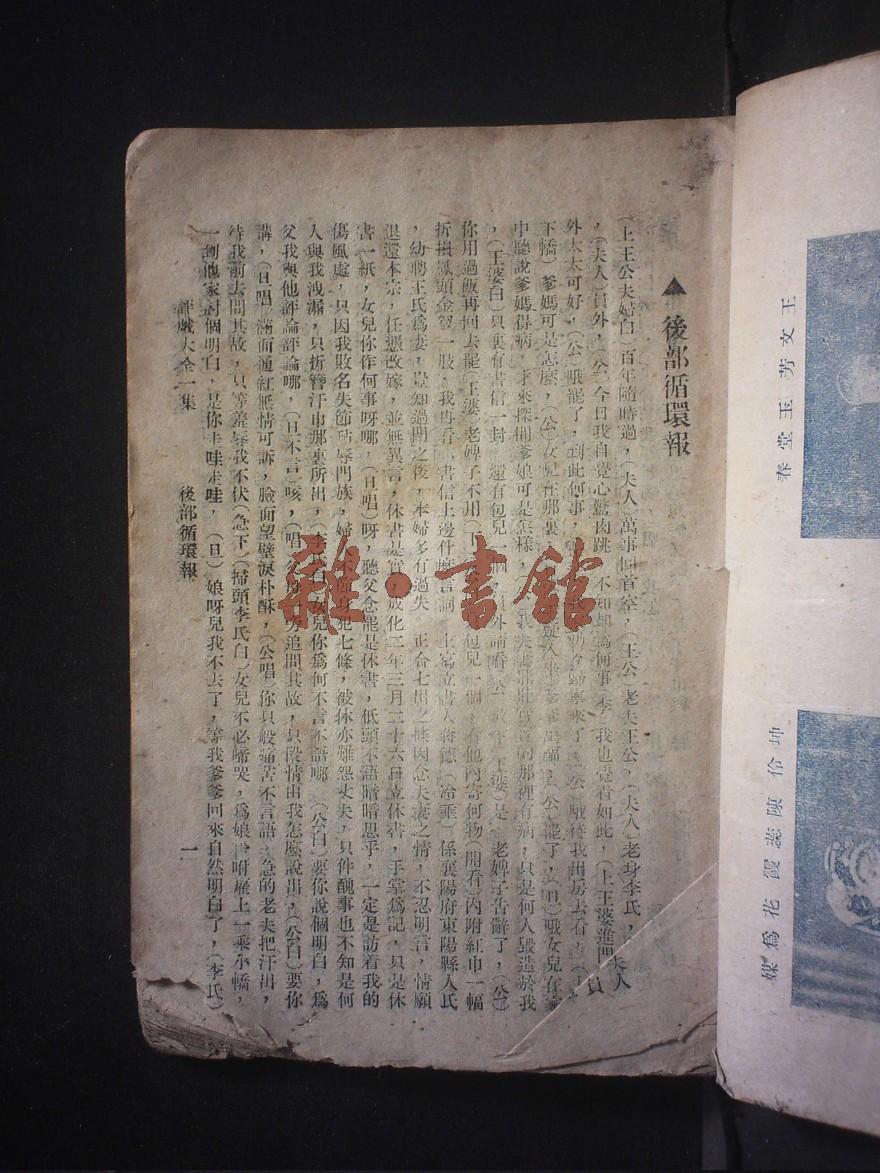 ▲後部循環報
(上王公夫婦白)百年隨時過,(夫人)萬事回首空,(王公)老夫王公,(夫人)老身李氏,
,(夫人)員外,(公)今日我自覺心驚肉跳,不知却爲何事,我也覺着如此,(上王婆進門)員
外太太可好,(公)哦罷了,到此何事,
下轎)爹媽可是怎麽,(公)女兒在那裏
中聽說爹媽得病,才來探問爹娘可是怎樣,那裡有病,只是何人毀造於我
,(王婆白)只裏有書信一封,還有包兒老婢子告辭了,(公)
你用過飯再回去罷(王婆)老婢子不用(下)包兒一個,看他內寄何物(開看)內附紅巾一幅
折損鳳頭金簪一股,我再看書信上邊什麽言詞,上寫立書人蔣德(冷乖)係襄陽府東陽縣人氏
,幼聘王氏爲妻,豈知過門之後,本婦多有過失,正合七出之條因念夫妻之情,不忍明言,情願
退還本宗,任憑改嫁,並無異言,休書是實,成化二年三月二十六日立休書,手掌爲記,只是休
書一紙,女兒你作何事呀哪,(旦唱)呀,聽父念罷是休書,低頭不語暗暗思乎,一定是訪着我的
傷風處,只因我敗名失節玷辱門族,婦人身犯七條,被休亦難怨丈夫,只件醜事也不知是何
人與我洩漏,只折簪汗巾那裏所出,(李氏白)女兒你爲何不言不語哪,(公白)要你說個明白,爲
父我與他評論評論哪,(旦不言)咳,(唱)父母一旁追問其故,只段情由我怎麽說出,(公白)要你
講,(旦唱)滿面通紅無情可訴,臉面望壁淚朴酥,(公唱)你只般痛苦不言語,急的老夫把汗出,
待我前去問其故,只等羞辱我不伏(急下)(掃頭李氏白)女兒不必啼哭,爲娘吩咐雇上一乘小轎,
一到他家討個明白,是你走哇走哇,(旦)娘呀兒我不去了,等我爹爹回來自然明白了,(李氏)
評戲大全一集 後部循環報 一
王文芳玉堂春
坤伶陳蕊霞花爲媒
雜·書館